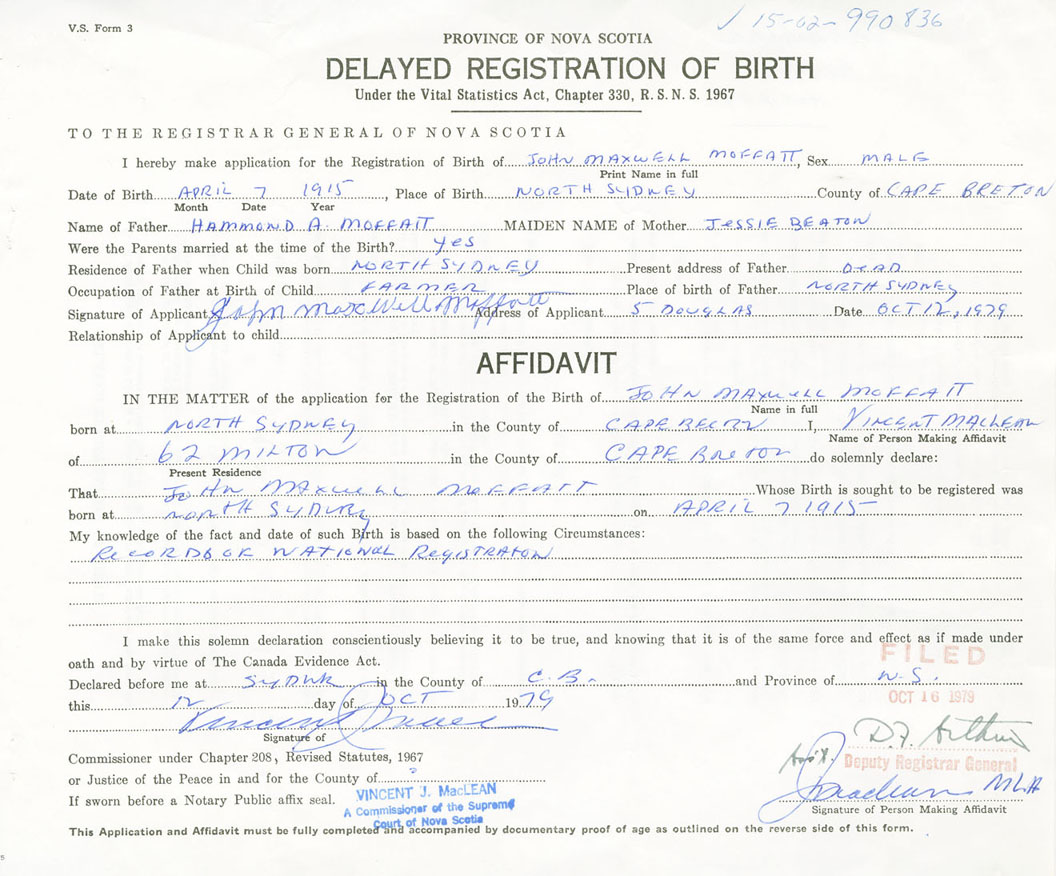 V.S. Form 3
✓ 15-02-990836
PROVINCE OF NOVA SCOTIA
DELAYED REGISTRATION OF BIRTH
Under the Vital Statistics Act, Chapter 330, R.S.N.S. 1967
TO THE REGISTRAR GENERAL OF NOVA SCOTIA
I hereby make application for the Registration of Birth of JOHN MAXWELL MOFFATT, Sex MALE
Print Name in full
Date of Birth APRIL 7 1915, Place of Birth NORTH SYDNEY County of CAPE BRETON
Month Date Year
Name of Father HAMMOND A. MOFFATT MAIDEN NAME of Mother JESSIE BEATON
Were the Parents married at the time of the Birth? yes
Residence of Father when Child was born NORTH SYDNEY Present address of Father DEAD
Occupation of Father at Birth of Child FARMER Place of birth of Father NORTH SYDNEY
Signature of Applicant John Maxwell Moffatt Address of Applicant 5 DOUGLAS Date OCT 12, 1979
Relationship of Applicant to child
AFFIDAVIT
IN THE MATTER of the application for the Registration of the Birth of JOHN MAXWELL MOFFATT
Name in full
born at NORTH SYDNEY in the County of CAPE I, VINCENT MACLEAN
Name of Person Making Affidavit
of 62 MILTON in the County of CAPE BRETON do solemnly declare:
Present Residence
That JOHN MAXWELL MOFFATT Whose Birth is sought to be registered was
born at NORTH SYDNEY on APRIL 7 1915
My knowledge of the fact and date of such Birth is based on the following Circumstances:
RECORDS OF NATIONAL REGISTRATON
I make this solemn declaration conscientiously believing it to be true, and knowing that it is of the same force and effect as if made under
oath and by virtue of The Canada Evidence Act.
FILED
Declared before me at in the County of C.B. and Province of N.S.
this 12 day of OCT 1979
OCT 16 1979
Signature of
Commissioner under Chapter 208, Revised Statutes, 1967
Deputy Registrar General
or Justice of the Peace in and for the County of
MLA
If sworn before a Notary Public affix seal.
VINCENT J. MacLEAN
A Commissioner of the Supreme
Court of Nova Scotia
Signature of Person Making Affidavit
This Application and Affidavit must be fully completed and accompanied by documentary proof of age as outlined on the reverse side of this form.